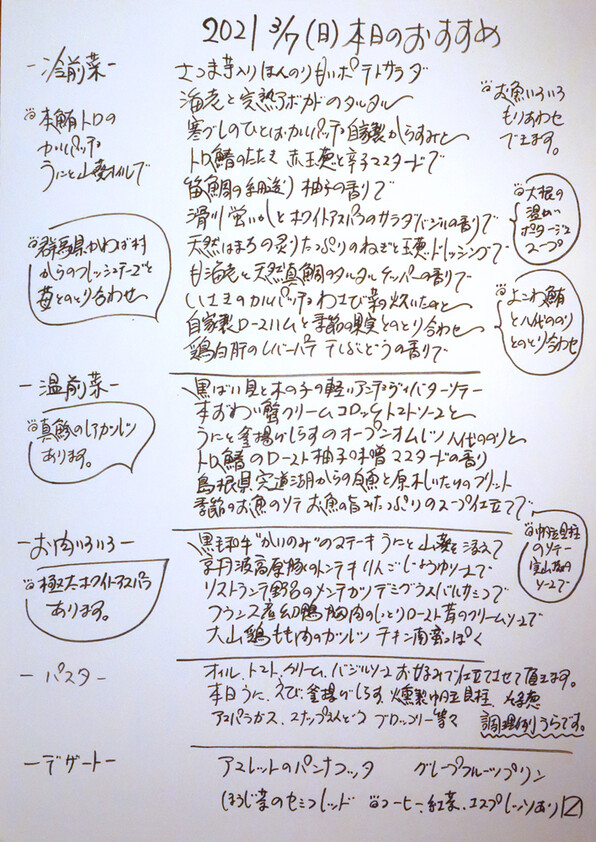 2021 3/7 (日) 本日のおすすめ
ー冷前菜ー
さつま芋入りほんのり甘いポテトサラダ
海老と完熟アボカドのタルタル
寒ブリのひとはカルパッチョ自家製からすみと
トロ鰆のたたき 赤玉葱と辛子マスタードで
笛鯛の 柚子の香りで
滑川蛍いかとホワイトアスパラのサラダバジルの香りで
天然はまちの炙りたっぷりのねぎと玉葱ドレッシングで
甘海老と天然真鯛のタルタルケッパーの香りで
いさきのカルパッチョ わさび菜の と
自家製ロースハムと季節の果実とのとり合わせ
鶏白肝のレバーパテ 干しぶどうの香りで
本鮪トロの
カルパッチョ
うにと山葵オイルで
群馬県かわば村
からのフレッシュチーズと
苺とのとり合わせ
お魚いろいろ
もりあわせ
できます。
大根の
温かい
ポタージュ
スープ
よこわ鮪
と八代ののり
とのとり合わせ
ー温前菜ー
黒ばい貝と木の子の軽いアンチョヴィバターソテー
本ずわい蟹クリームコロッケトマトソースと
うにと釜揚げしらすのオープンオムレツ 八代ののりと
トロ鰆のロースト 柚子味噌マスタードの香り
島根県宍道湖からの白魚と原木しいたけのフリット
季節のお魚のソテー お魚の旨みたっぷりのスープ仕立てで
真鯵のレアカツレツ
あります。
帆立貝柱
のソテー
実山椒
ソースで
ーお肉いろいろー
黒毛和牛"かいのみ"のステーキ うにと山葵を添えて
京丹波高原豚のトンテキ りんごしょうゆソースで
リストランテ野呂のメンチカツ デミグラスバルサミコで
フランス産幼鴨胸肉のしっとりロースト茸のクリームソースで
大山鶏もも肉のカツレツ チキン南蛮っぽく
極太ホワイトアスパラ
あります。
ーパスター
オイル、トマト、クリーム、バジルソース お好みで仕立てさせて頂きます。
本日うに、えび、釜揚げしらす、燻製帆立貝柱、そら豆
アスパラガス、スナップえんどう ブロッコリー等々 調理例うらです。
ーデザートー
アマレットのパンナコッタ グレープフルーツプリン
ほうじ茶のセミフレッド コーヒー、紅茶、エスプレッソあり